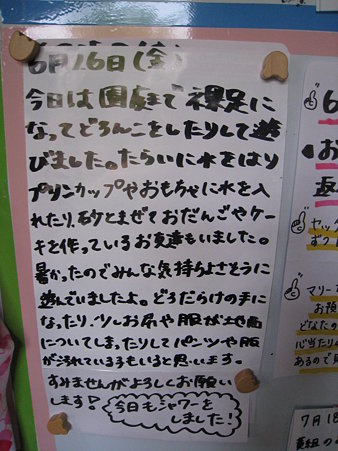 6月16日(金)
今日は園庭で裸足に
なってどろんこをしたりして遊
びました。たらいに水をはり
プリンカップやおもちゃに水を入
れたり、砂とまぜておだんごやケー
キを作っているお友達もいました。
暑かったのでみんな気持ちよさそうに
遊んでいましたよ。どろだらけの手に
なったり、少しお尻や服が地面
についてしまったりしてパンツや服
が汚れている子もいると思います。
すみませんがよろしくお願い
します!
今日もシャワーを
しました!
6
お
返
セッ
ずつ
マリー
お預
どなたの
心当たり
あるので見
7月18